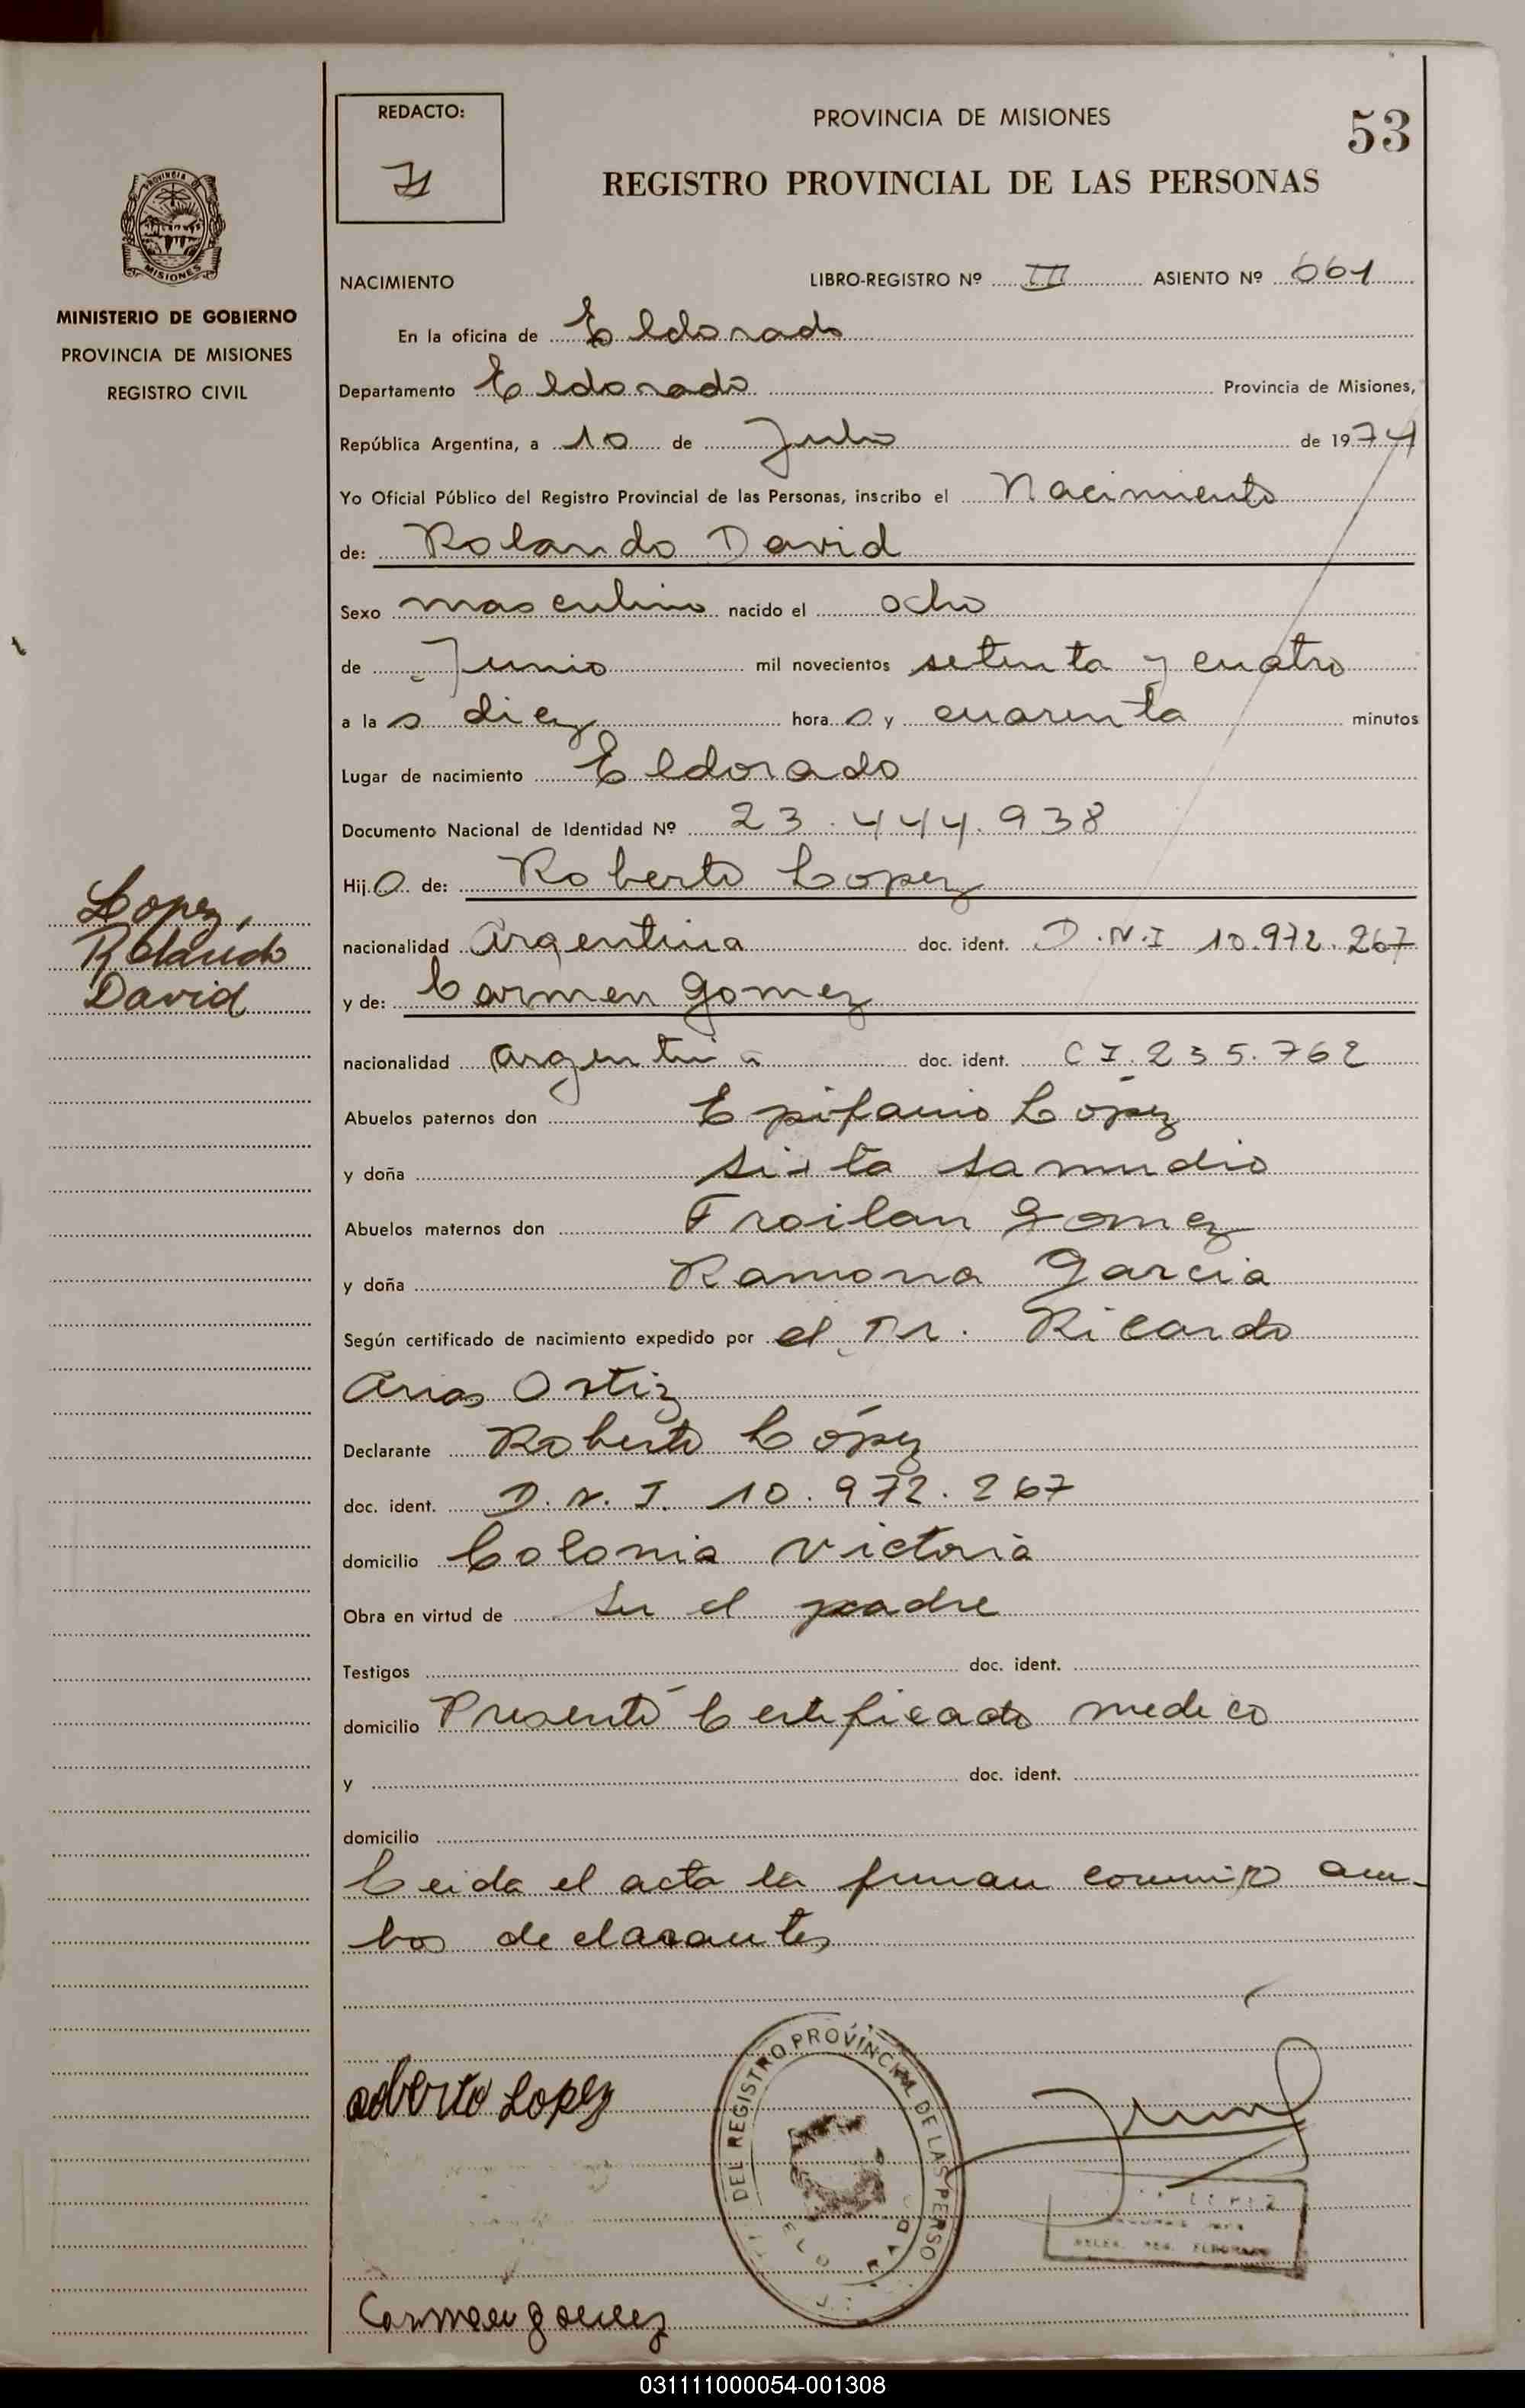 REDACTO:
PROVINCIA DE MISIONES
53
REGISTRO PROVINCIAL DE LAS PERSONAS
PROVINCIA DE
MISIONES
MINISTERIO DE GOBIERNO
PROVINCIA DE MISIONES
REGISTRO CIVIL
NACIMIENTO LIBRO-REGISTRO Nº III ASIENTO Nº 661
En la oficina de Eldorado
Departamento Eldorado Provincia de Misiones,
República Argentina, a 10 de Julio de 1974
Yo Oficial Público del Registro Provincial de las Personas, inscribo el Nacimiento
de: Rolando David
Sexo masculino nacido el ocho
de Junio mil novecientos setenta y cuatro
a las diez horas y cuarenta minutos
Lugar de nacimiento Eldorado
Documento Nacional de Identidad Nº 23.444.938
Hijo de: Roberto Lopez
Lopez,
Rolando
David
nacionalidad Argentina doc. ident. D.N.I 10.972.267
y de: Carmen Gomez
nacionalidad argentina doc. ident. C I. 235.762
Abuelos paternos don Epifanio López
y doña Sixta Samudio
Abuelos maternos don Froilan Gomez
y doña Ramona Garcia
Según certificado de nacimiento expedido por el Dr. Ricardo
Arias Ortiz
Declarante Roberto López
doc. ident. D.N.I. 10.972.267
domicilio Colonia Victoria
Obra en virtud de Ser el padre
Testigos doc. ident.
domicilio Presentó Certificado medico
y doc. ident.
domicilio
Leida el acta la firman conmigo am-
bos declarantes
Roberto Lopez
DEL REGISTRO PROVINCIAL DE LAS PERSO
ELDORADO
LOPEZ
ELDORADO
Carmen gomez
031111000054-001308